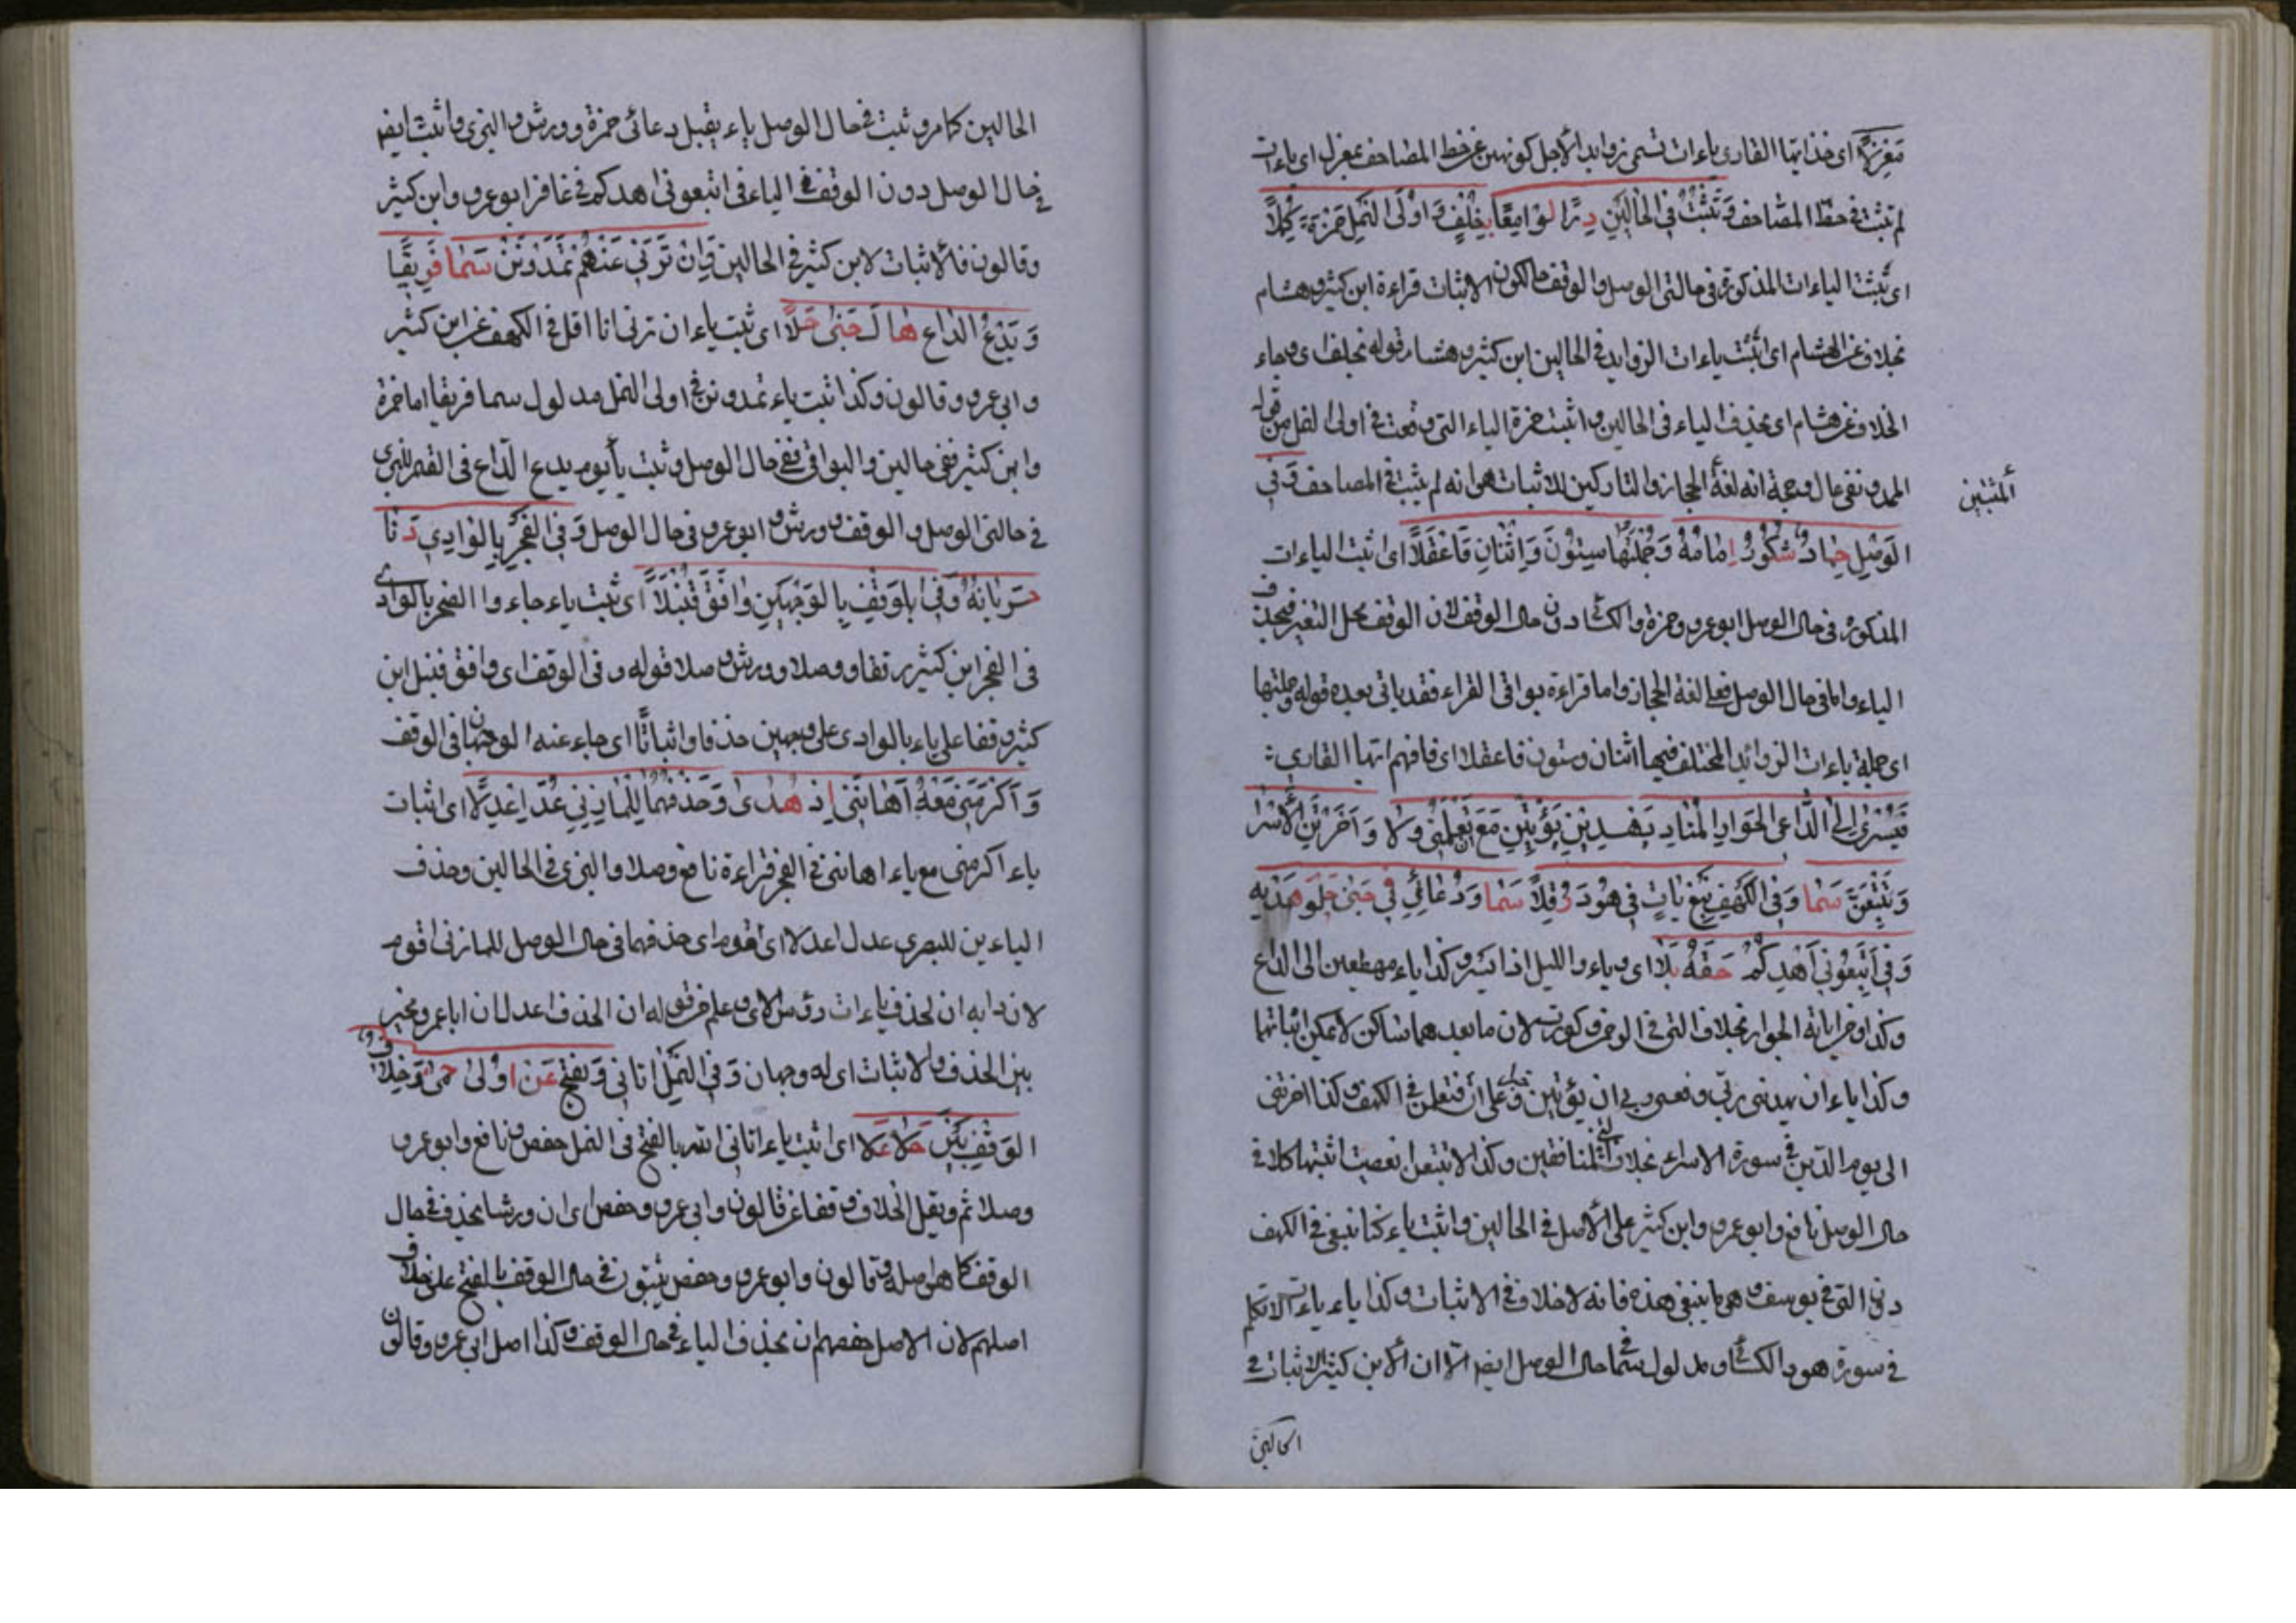 مَعزِلًا اى خذ ايها القارى ياءات تسمى زوايد الاجل كونهن عن خط المصاحف بمعزل اى ياءات
لم تثبت فى خط المصاحف وَتَثْبُتُ فِى الحَالَيْنِ دُرًّا لَوَامِعًا بِخُلْفٍ وَاُولَى النَّمْلِ حَمْزَةُ كَمَّلَا
اى تثبت الياءات المذكورة فى حالتى الوصل والوقف حالكون الاثبات قراءة ابن كثير وهشام
بخلاف عن الهشام اى اثبت ياءات الزوايد فى الحالين ابن كثير وهشام قوله بخلف اى وجاء
الخلاف عن هشام اى بحذف الياء فى الحالين واثبت حمزة الياء التى وقعت فى اولى النمل من قوله
اتمدونن بمال وجهة انه لغة الحجاز والتاركين للاثبات هو انه لم يثبت فى المصاحف وَفِى
المثبتين
الوَصْلِ حَمَّادٌ شَكُورٌ اِمَامُهُ وَجُمْلَتُهَا سِتُّونَ وَاثْنَانِ فَاعْقِلَا اى اثبت الياءات
المذكورة فى حال الوصل ابو عمرو وحمزة والكسائى دون حال الوقف لان الوقف محل التغير فيحذف
الياء واما فى حال الوصل فعلى لغة الحجاز واما قراءة بواقى القراء فقد ياتى بعده قوله وجملتها
اى جملة ياءات الزوائد المختلف فيها اثنان وستون فاعقلا اى فافهم ايها القارى
فَيَسْرِى اِلَى الدَّاعِ الجَوَارِ المُنَادِ يَهْدِيَنْ يُؤْتِيَنْ مَعْ تُعَلِّمَنِى وِلَا وَاَخَّرْتَنِى الْاِسْرَا
وَتَتَّبِعَنْ سَمَا وَفِى الكَهْفِ نَبْغِى يَاتِ فِى هُودَ رُفِّلَا سَمَا وَدُعَائِى فِى جَنَى حُلْوِ هَدْيِهِ
وَفِى اتَّبِعُونِى اَهْدِكُمْ حَقُّهُ بَلَا اى وياء والليل اذا يسر وكذا ياء مهطعين الى الداع
وكذا وخر اياته الجوار بخلاف التى فى الرحمن وكورت لان ما بعدهما ساكن لا يمكن اثباتها
وكذا ياء ان يهدينى ربى وفعسى ربى ان يؤتين وعلى ان تعلمن فى الكهف وكذا اخرتنى
الى يوم الدين فى سورة الاسراء بخلاف التى فى المنافقين وكذا الا تتبعن افعصيت اثبتها كلا فى
حال الوصل نافع وابو عمرو وابن كثير على الاصل فى الحالين واثبت ياء كنا نبغى فى الكهف
دون التى فى يوسف وهى ما نبغى هذه فانه لا خلاف فى الاثبات وكذا ياء يات لا تكلم
فى سورة هود الكسائى ومدلول سما فى حال الوصل ايضا الا ان لابن كثير الاثبات فى
الحالين
الحالين كما مر وثبت فى حال الوصل ياء يقبل دعائى حمزة وورش والبزى واثبت ايضا
فى حال الوصل دون الوقف الياء فى اتبعونى اهدكم فى غافر ابو عمرو وابن كثير
وقالون فالاثبات لابن كثير فى الحالين وَاِنْ تَرَنِى عَنْهُمْ تُمِدُّونَنِى سَمَا فَرِيقًا
وَيَدْعُ الدَّاعِ هَاكَ جَنَى حَلَا اى ثبت ياء ان ترنى انا اقل فى الكهف عن ابن كثير
وابى عمرو وقالون وكذا اثبت ياء تمدونن فى اولى النمل مدلول سما فريقا اما حمزة
وابن كثير ففى حالين والبواقى ففى حال الوصل وثبت ياء يوم يدع الداع فى القمر للبزى
فى حالتى الوصل والوقف وورش وابو عمرو فى حال الوصل وَفِى الفَجْرِ بِالوَادِى دَنَا
جَرَيَانُهُ وَفِى الوَقْفِ بِالوَجْهَيْنِ وَافَقَ قُنْبُلَا اى ثبت ياء جاءوا الصخر بالوادى
فى الفجر ابن كثير وقفا ووصلا وورش وصلا قوله وفى الوقف اى وافق قنبل ابن
كثير وقفا على ياء بالوادى على وجهين حذفا واثباتا اى جاء عنه الوجهان فى الوقف
وَاَكْرَمَنِى مَعْهُ اَهَانَنِى اِذْ هَدَى وَحَذْفُهُمَا لِلْمَازِنِى عُدَّ اَعْدَلَا اى اثبات
ياء اكرمنى مع ياء اهاننى فى الفجر قراءة نافع وصلا والبزى فى الحالين وحذف
الياءين للبصرى عدل اعدلا اى اقوم اى حذفهما فى حال الوصل للمازنى اقوم
لان دابه ان يحذف ياءات رؤس الاى وعلم من قوله ان الحذف اعدل ان ابا عمرو مخير
بين الحذف والاثبات اى له وجهان وَفِى النَّمْلِ اتَانِى وَيُفْتَحُ عَنْ اُولِى حِمًى وَخِلَافُ
الوَقْفِ بَيْنَ حُلًا عَلَا اى اثبت ياء اتانى الله بالفتح فى النمل حفص ونافع وابو عمرو
وصلا ثم ونقل الخلاف وقفا عن قالون وابى عمرو وحفص اى ان ورشا يحذف فى حال
الوقف كما هو اصله وقالون وابو عمرو وحفص يثبتون فى حال الوقف بالفتح على خلاف
اصلهم لان الاصل حفصهم ان يحذف الياء فى حال الوقف وكذا اصل ابى عمرو وقالون